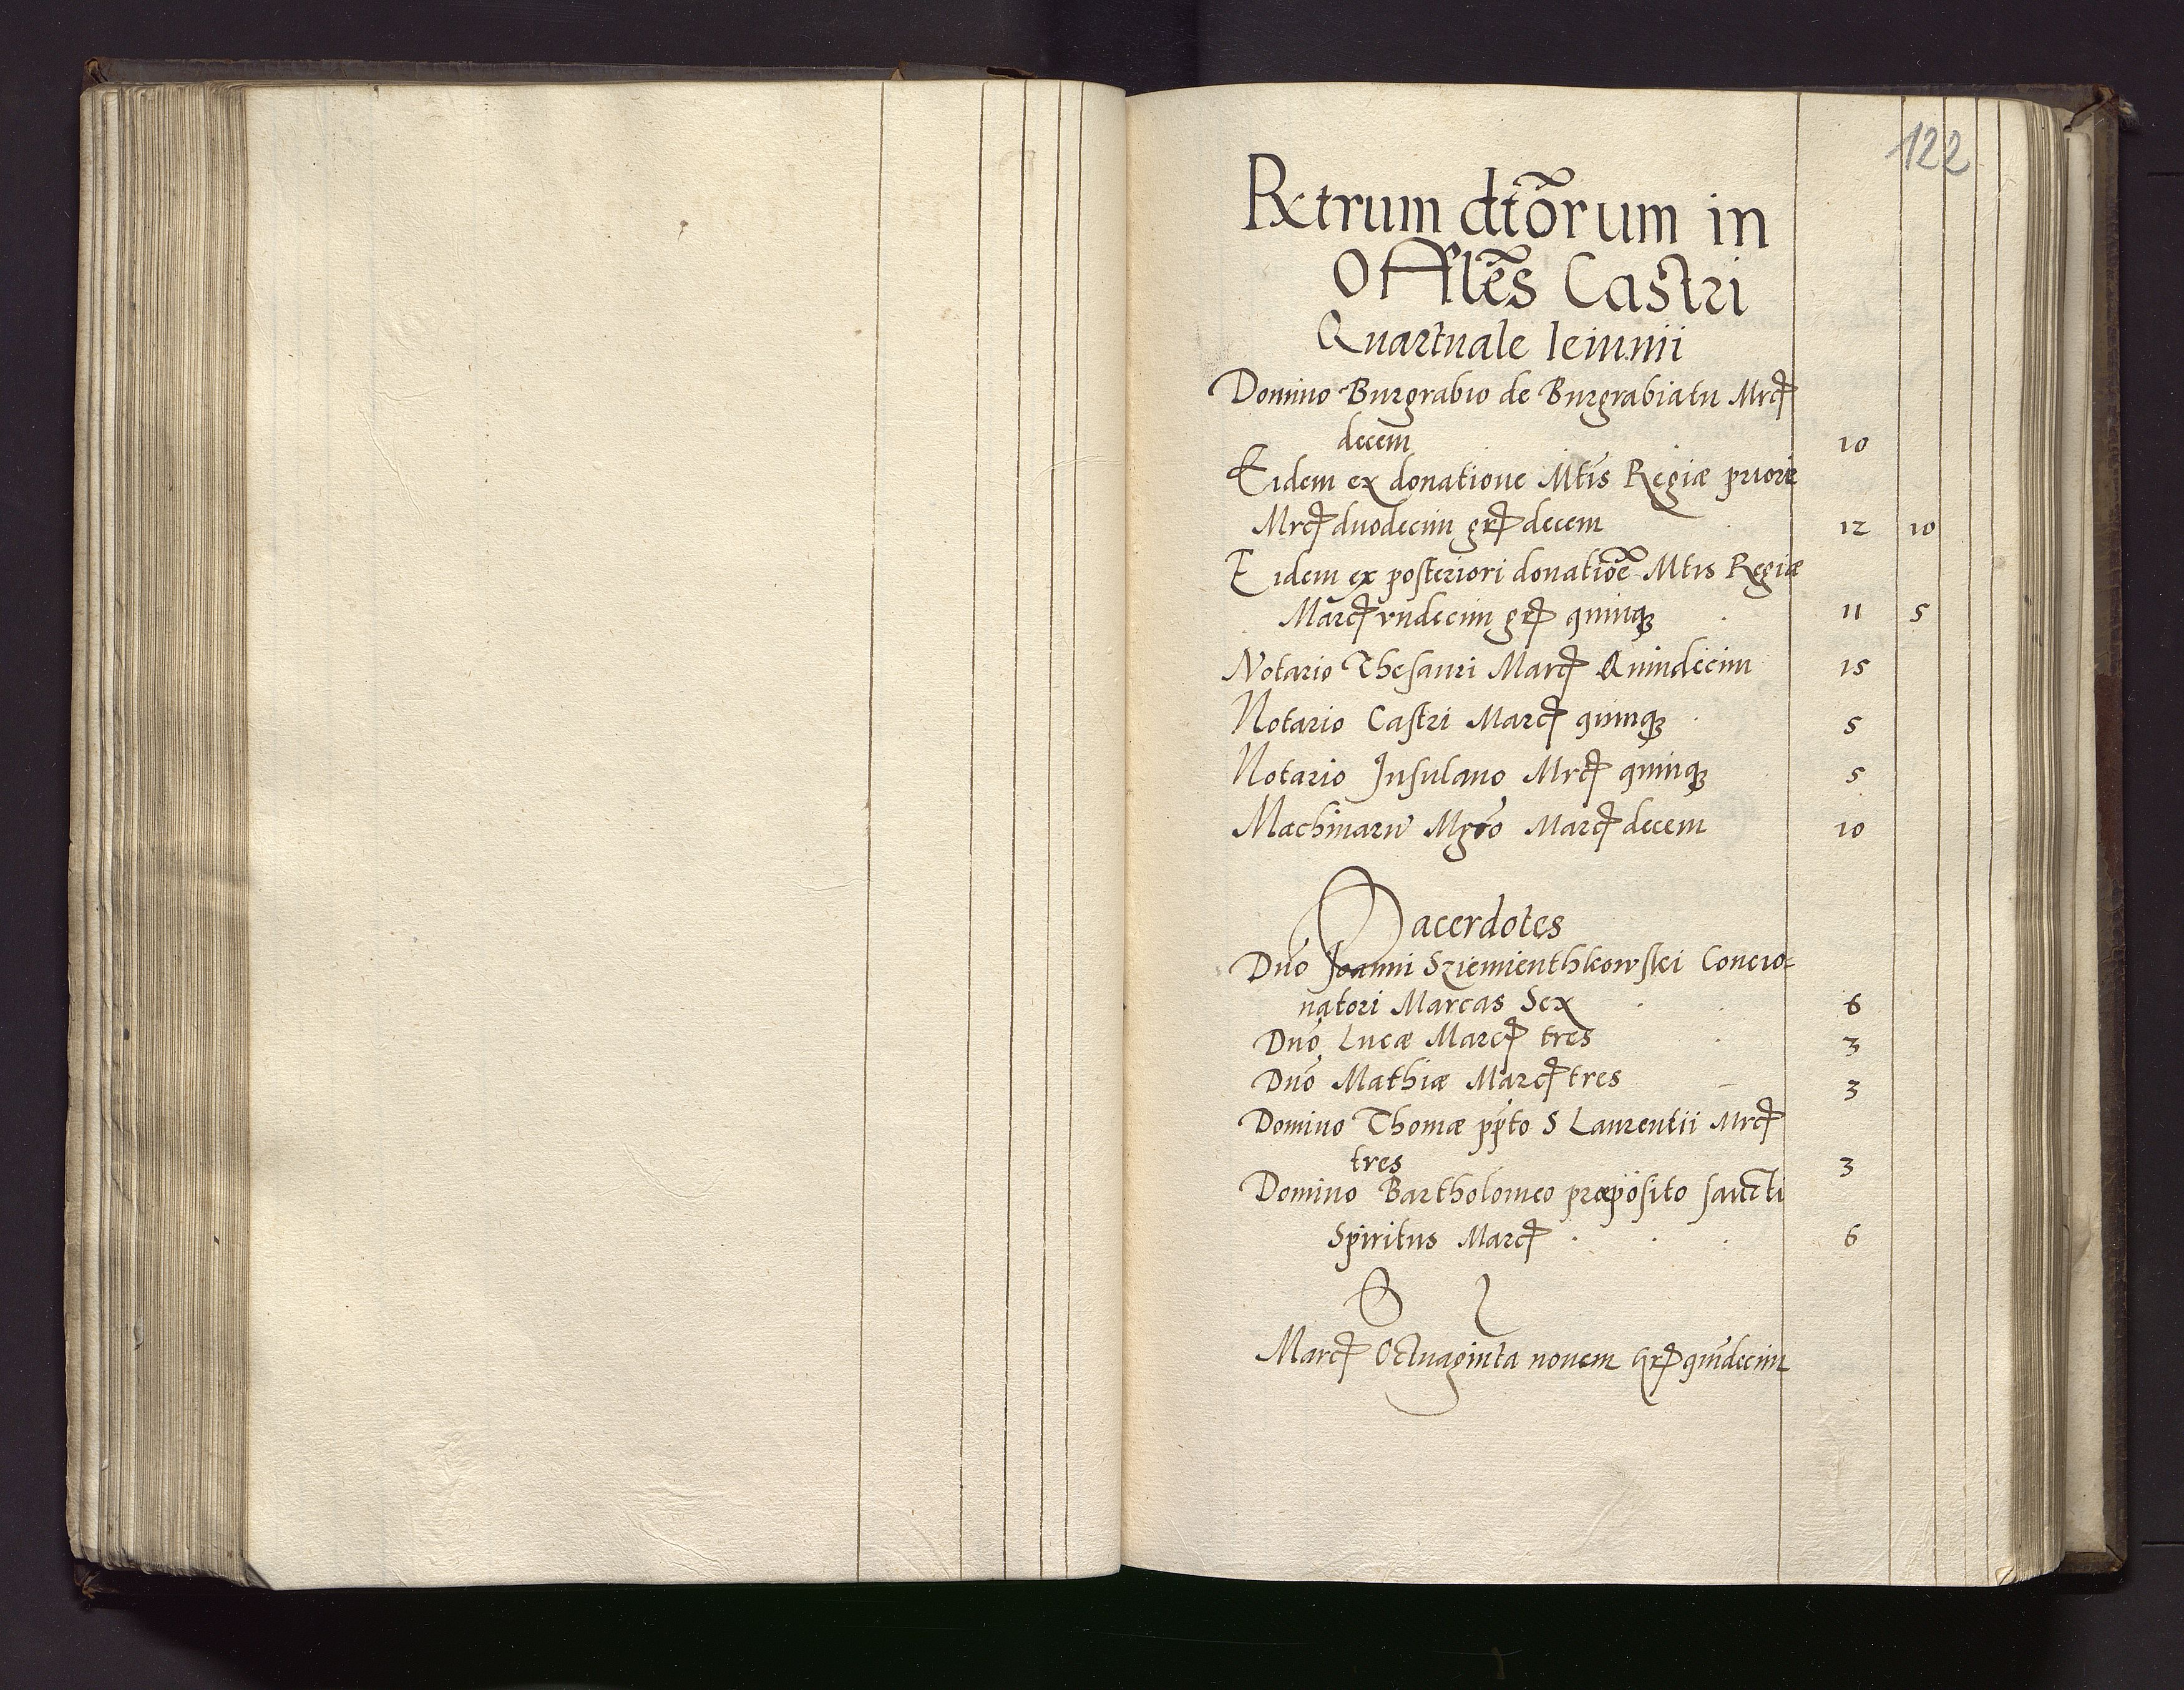 122
Rxtrum dtõrum in
Offlẽs Castri
Quartuale Ieiunii
Domino Burgrabio de Burgrabiatu Mrcꝭ
decem 10
Eidem ex donatione Mtis Regiæ priori
Mrcꝭ duodecim grꝭ decem 12 10
Eidem ex posteriori donatiõe Mtis Regiæ
Marcꝭ vndecim grꝭ quinqꝫ 11 5
Notario Thesauri Marcꝭ Quindecim 15
Notario Castri Marcꝭ quinqꝫ 5
Notario Insulano Mrcꝭ quinqꝫ 5
Machinarũ Mgrõ Marcꝭ decem 10
Sacerdotes
Dnõ Joanni Sziemienthkowski Concio-
natori Marcas Sex 6
Dnõ Lucæ Marcꝭ tres 3
Dnõ Mathiæ Marcꝭ tres 3
Domino Thomæ ppto S Laurentii Mrcꝭ
tres 3
Domino Bartholomeo præposito sancti
Spiritus Marcꝭ 6
S
Marcꝭ Octuaginta nouem grꝭ quindecim